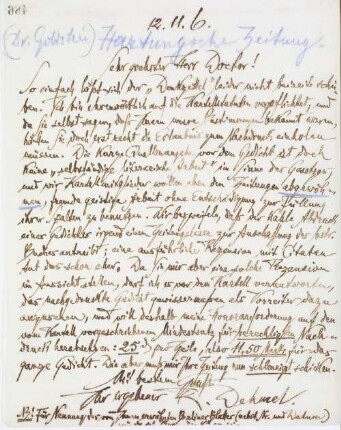 186
12.11.6.
(Dr. Goldstein) Hartungsche Zeitung.
Sehr geehrter Herr Doctor!
So einfach läßt sich der „Denkzettel" leider nicht beiseite schie-
ben. Ich bin ehrenwörtlich auf die Kartellstatuten verpflichtet, und
da Sie selbst sagen, daß Ihnen unsre Bestimmungen bekannt waren,
hätten Sie doch erst recht die Erlaubnis zum Nachdruck einholen
müssen. Die kurze Quellenangabe vor dem Gedicht ist doch
keine „selbständige literarische Arbeit" im Sinne des Gesetzes,
und wir Kartellmitglieder wollen eben den Zeitungen abgewöh-
nen, fremde geistige Arbeit ohne Entschädigung zur Füllung
ihrer Spalten zu benutzen. Wir bezweifeln, daß der kahle Abdruck
eines Gedichtes irgend einen Zeitungsleser zur Anschaffung der betr.
Bücher antreibt; eine ausführliche Rezension mit Citaten
tut das schon eher. Da Sie mir aber eine solche Rezension
in Aussicht stellen, darf ich es vor dem Kartell verantworten,
das nachgedruckte Gedicht gewissermaßen als Vorreiter dazu
anzusehen, und will deshalb meine Honorarforderung auf den
vom Kartell vorgeschriebenen Mindestsatz für berechtigten Nach-
druck herabsetzen: 25 d pro Zeile, also 11,50 Mark für das
ganze Gedicht. Die aber muß mir Ihre Zeitung nun schleunigst schicken.
Mit bestem Gruß
Ihr ergebener
R. Dehmel.
NB! Für Nennung der von Ihnen erwähnten Berliner Blätter (nebst Nr. und Datum)